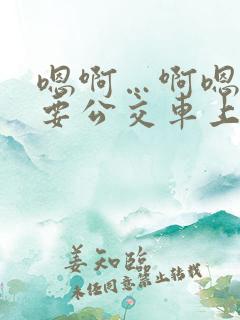 嗯啊…啊嗯
要公交车上
姜知临
未经同意禁止转载